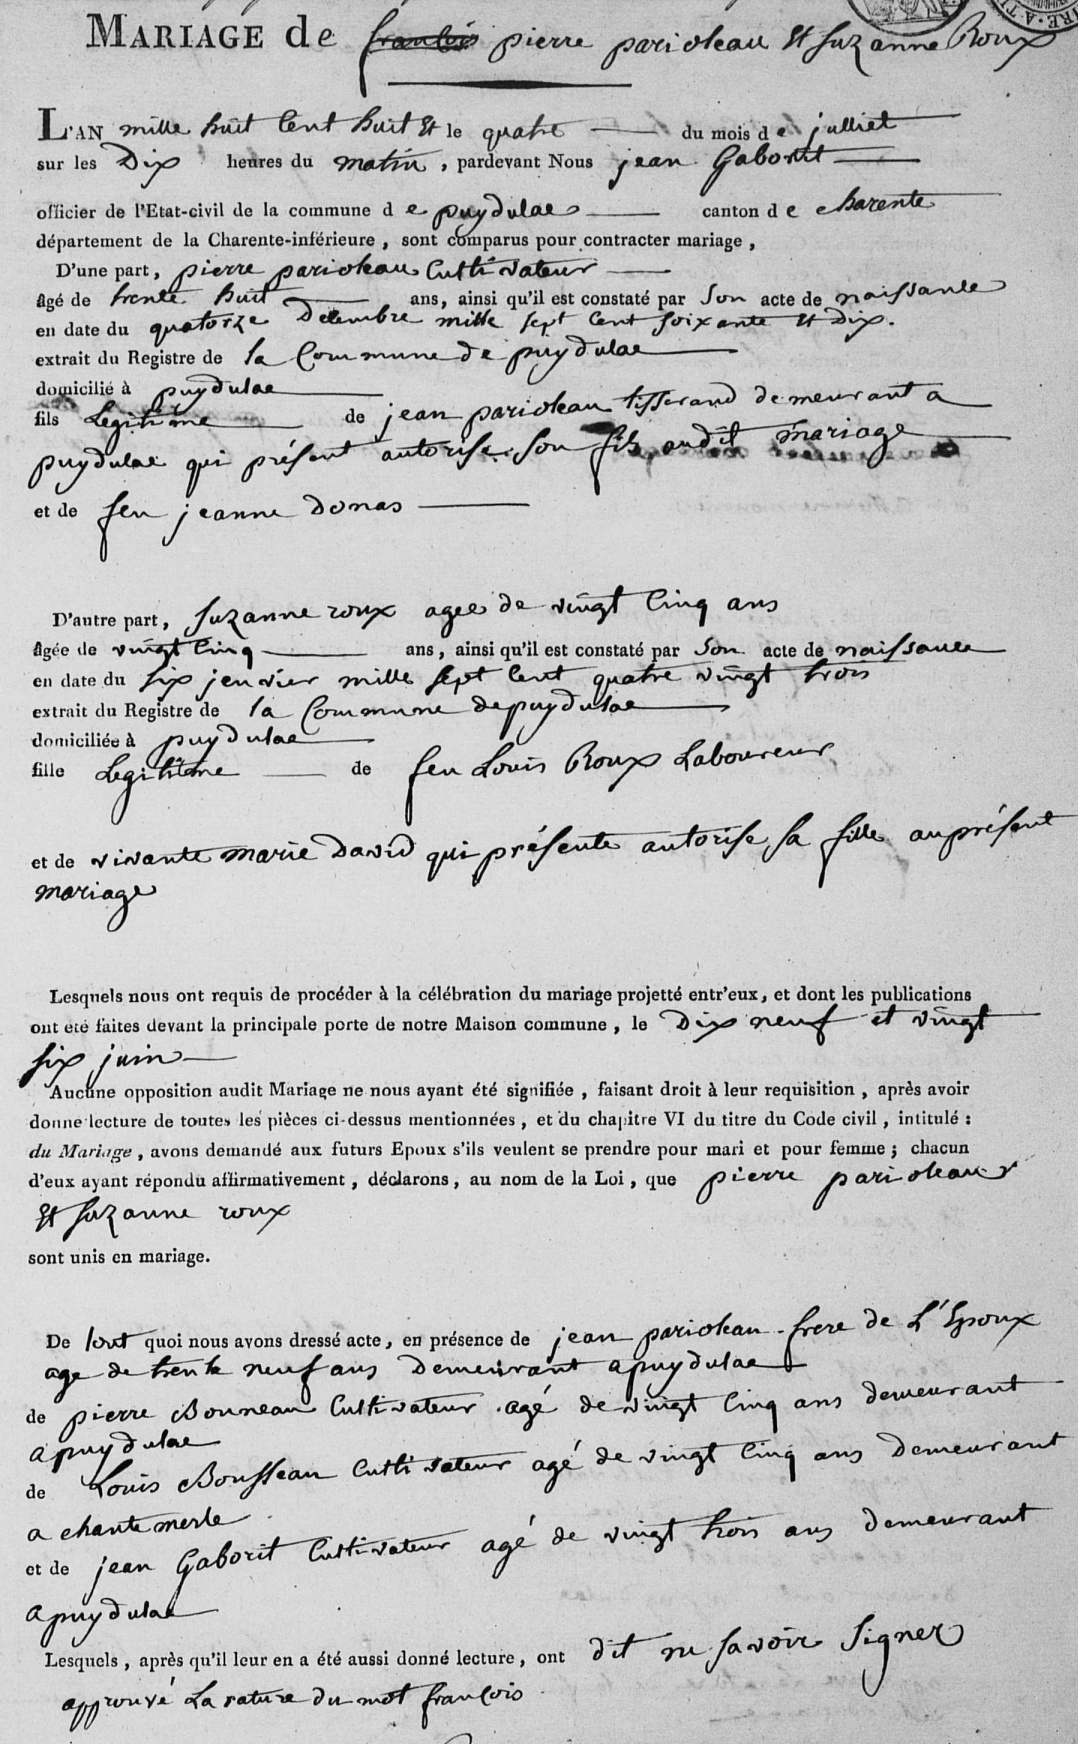 MARIAGE de françois pierre parioleau Et Suzanne Roux
L'AN mille huit Cent huit Et le quatre du mois de julliet
sur les Dix heures du matin, pardevant Nous jean Gaborit
officier de l'Etat-civil de la commune de puydulac canton de charente
département de la Charente-inférieure, sont comparus pour contracter mariage,
D'une part, pierre parioleau Cultivateur
âgé de trente huit ans, ainsi qu'il est constaté par Son acte de naissance
en date du quatorze Decembre mille sept Cent Soixante Et Dix.
extrait du Registre de la Commune de puydulac
domicilié à puydulac
fils Legitime de jean parioleau tisserand demeurant a
puydulac qui présent autorise Son fils, audit mariage
et de feu jeanne donas
D'autre part, Suzanne roux agee de vingt Cinq ans
âgée de vingt Cinq ans, ainsi qu'il est constaté par Son acte de naissance
en date du six jenvier mille sept Cent quatre vingt trois
extrait du Registre de la Commune de puydulac
domiciliée à puydulac
fille Legitime de feu Louis Roux Laboureur
et de vivante marie David qui présente autorise sa fille au présent
mariage
Lesquels nous ont requis de procéder à la célébration du mariage projetté entr'eux, et dont les publications
ont été faites devant la principale porte de notre Maison commune, le Dix neuf et vingt
six juin
Aucune opposition audit Mariage ne nous ayant été signifiée, faisant droit à leur requisition, après avoir
donne lecture de toutes les pièces ci-dessus mentionnées, et du chapitre VI du titre du Code civil, intitulé :
du Mariage, avons demandé aux futurs Epoux s'ils veulent se prendre pour mari et pour femme ; chacun
d'eux ayant répondu affirmativement, déclarons, au nom de la Loi, que pierre parioleau
Et Suzanne roux
sont unis en mariage.
De tout quoi nous avons dressé acte, en présence de jean parioleau frere de L'Epoux
age de trente neuf ans Demeurant a puydulac
de pierre Bonneau Cultivateur agé de vingt Cinq ans demeurant
a puydulac
de Louis Bousseau Cultivateur agé de vingt Cinq ans Demeurant
a chantemerle
et de jean Gaborit Cultivateur agé de vingt trois ans demeurant
a puydulac
Lesquels, après qu'il leur en a été aussi donné lecture, ont dit ne savoir Signer
approuvé La rature du mot françois